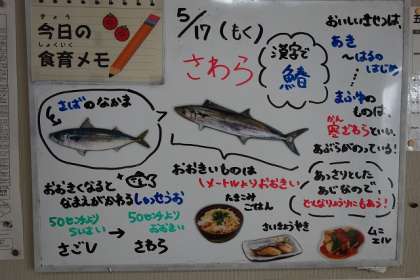 きょう
今日の
しょくいく
食育メモ
5/17(もく)
さわら
漢字で
鰆
おいしいきせつは、
あき
〜はるの
はじめ
まふゆの
ものは、
かん
寒ざわらといい、
あぶらがのっている!
さばのなかま
おおきいものは
1メートルよりおおきい
おおきくなると
なまえがかわるしゅっせうお
50センチより
ちいさい
さごし
→
50センチより
おおきい
さわら
たきこみ
ごはん
さいきょうやき
ムニ
エル
あっさりとした
あじなので、
どんなりょうりにもあう!